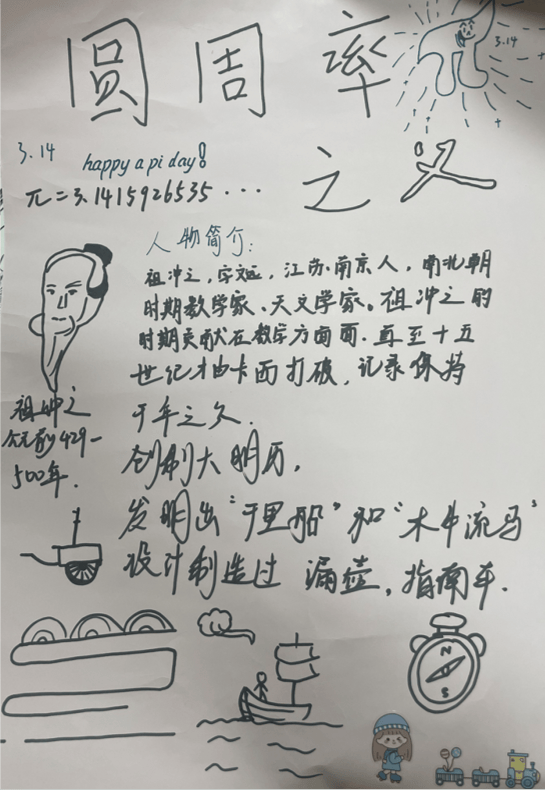 圆周率
3.14
3.14
happy a pi day!
π=3.1415926535···
之父
人物简介:
祖冲之,字文远,江苏南京人,南北朝
时期数学家、天文学家。祖冲之的
时期贡献在数学方面面.直至十五
世纪才由卡西打破,记录保持
千年之久.
创制大明历,
发明出"千里船"和"木牛流马"
设计制造过 漏壶,指南车.
祖冲之
公元前429-
500年.
N
S